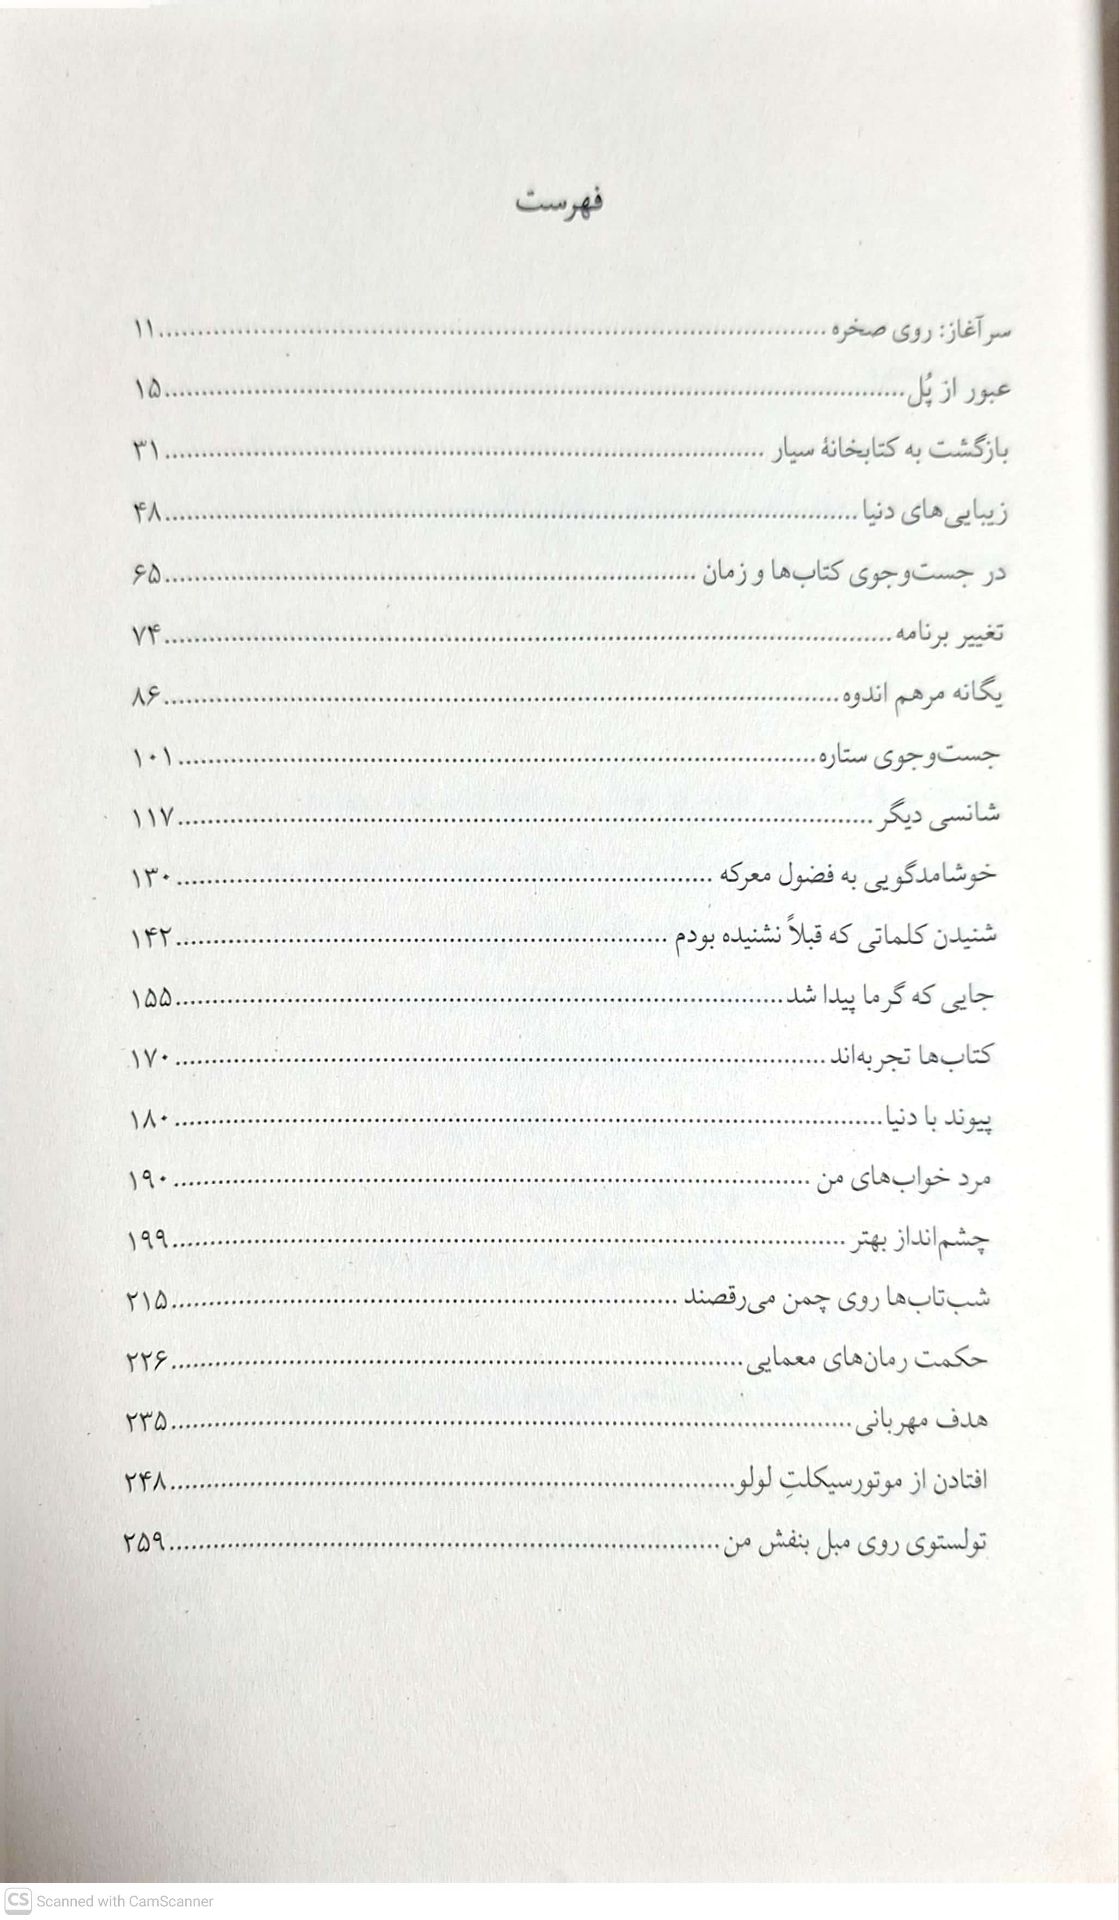 فهرست
سرآغاز: روی صخره ........ ۱۱
عبور از پُل ........ ۱۵
بازگشت به کتابخانهٔ سیار ........ ۳۱
زیبایی‌های دنیا ........ ۴۸
در جست‌وجوی کتاب‌ها و زمان ........ ۶۵
تغییر برنامه ........ ۷۴
یگانه مرهم اندوه ........ ۸۶
جست‌وجوی ستاره ........ ۱۰۱
شانسی دیگر ........ ۱۱۷
خوشامدگویی به فضول معرکه ........ ۱۳۰
شنیدن کلماتی که قبلاً نشنیده بودم ........ ۱۴۲
جایی که گرما پیدا شد ........ ۱۵۵
کتاب‌ها تجربه‌اند ........ ۱۷۰
پیوند با دنیا ........ ۱۸۰
مرد خواب‌های من ........ ۱۹۰
چشم‌انداز بهتر ........ ۱۹۹
شب‌تاب‌ها روی چمن می‌رقصند ........ ۲۱۵
حکمت رمان‌های معمایی ........ ۲۲۶
هدف مهربانی ........ ۲۳۵
افتادن از موتورسیکلتِ لولو ........ ۲۴۸
تولستوی روی مبل بنفش من ........ ۲۵۹
CS Scanned with CamScanner